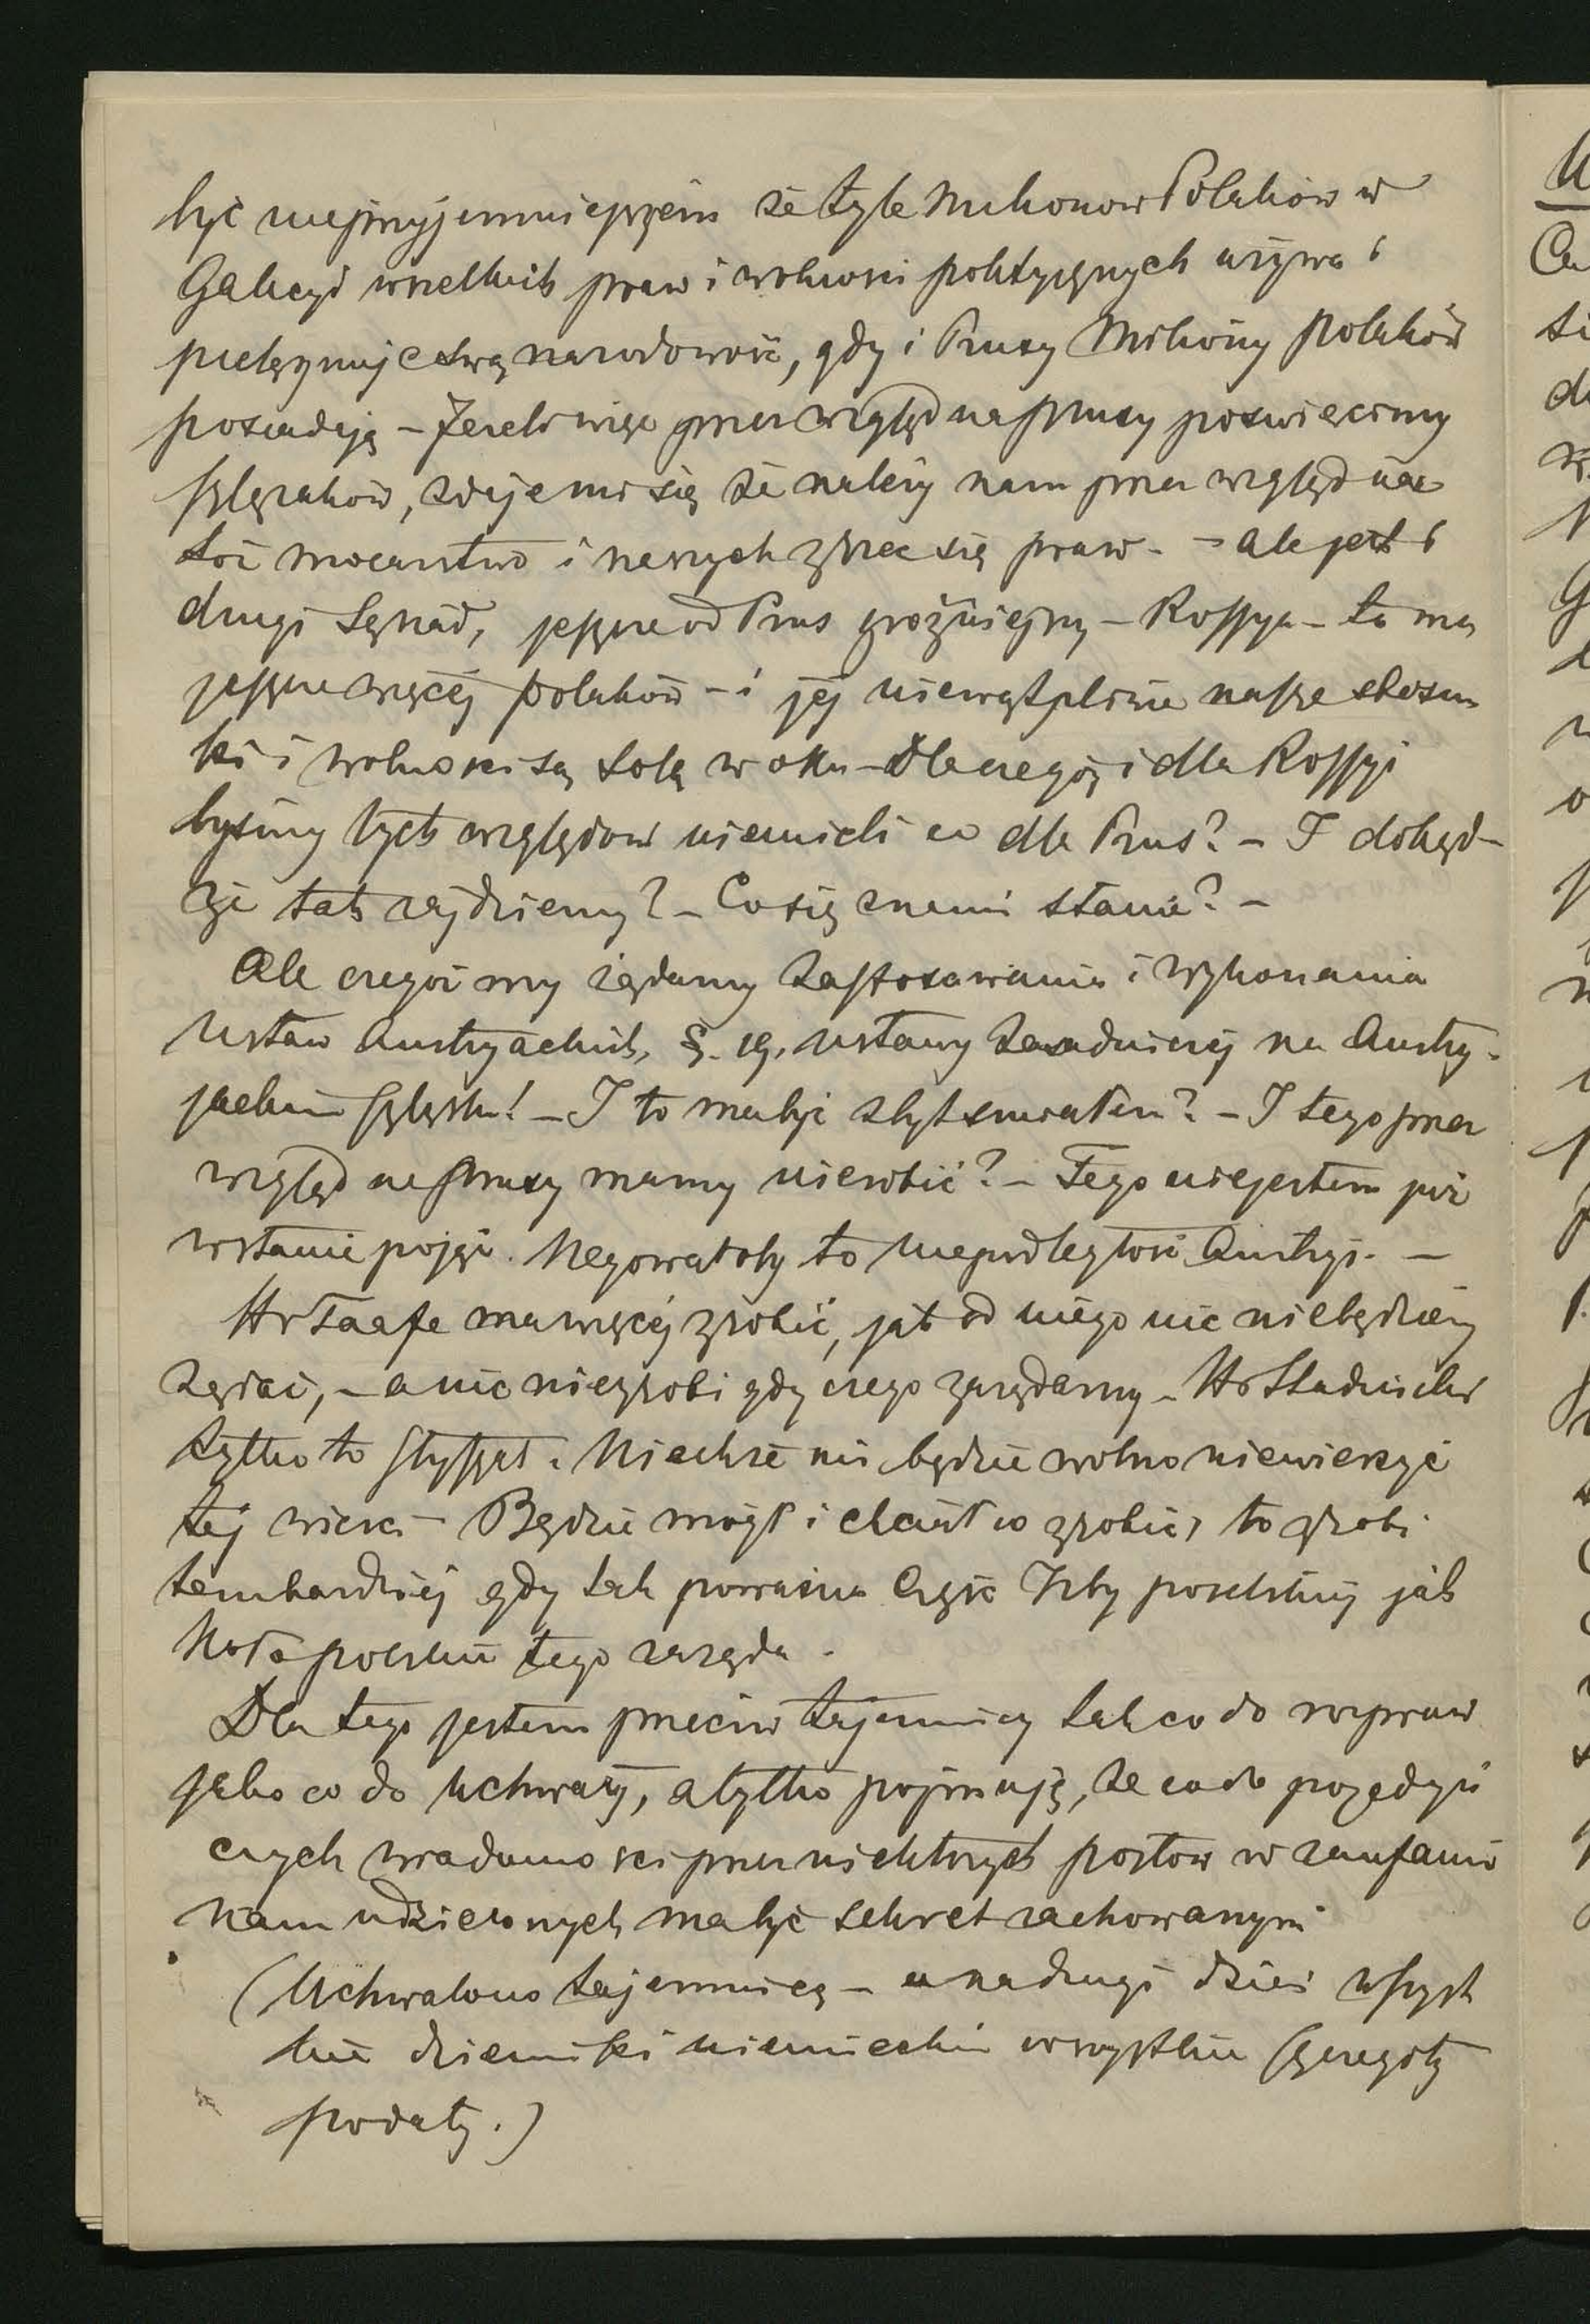 być nieprzyjemniejszem że tyle Milionow Polaków w
Galicyi wszelkich praw i wolności politycznych używa i
pielęgnuje swą narodowość, gdy i Prusy Miliony polaków
posiadają – Jeżeli więc przez wzgląd na prusy poswięcimy
szlązaków, zdaje mi się że należy nam przez wzgląd na
toż mocarstwo i naszych zrzec się praw. – ale jest i
drugi Sąsiad, jeszcze od Prus groźniejszy – Rossya – ta ma
jeszcze więcej polaków – i jej niewątpliwie nasze stosun
ki i wolności są solą w oku – Dlaczegóż i dla Rossyi
byśmy tych względow niemieli co dla Prus? – I dokąd–
że tak zajdziemy? – Co się z nami stanie? –
Ale czegoż my żądamy zastosowania i wykonania
Ustaw Austryackich, §. 19. ustawy zasadniczej na Austry-
jackim szląsku! – I to ma być zbyt smiałem? – I tego przez
wzgląd na prusy mamy nierobić? – Tego niejestem już
wstanie pojąć. Negowałoby to niepodległość Austryi. –
Hr Taafe ma więcej zrobić, jak od niego nic niebędziemy
żądać, – a nic niezrobi gdy czego zażądamy – Hr Stadnicki
tylko to słyszał. Niechże mi będzie wolno niewierzyć
tej wieści – Będzie mógł i chciał co zrobić, to zrobi
tembardziej gdy tak poważna Część Izby poselskiej jak
Koło polskie tego zażąda.
Dla tego jestem przeciw tajemnicy tak co do rozpraw
jako co do uchwały, a tylko pojmuję, że co do pojedyń
czych wiadomości przez niektórych posłow w zaufaniu
nam udzielonych ma być sekret zachowanym
(Uchwalono tajemnicę – a na drugi dzień wszyst
kie dzienniki niemieckie wszystkie szczegóły
podały.)